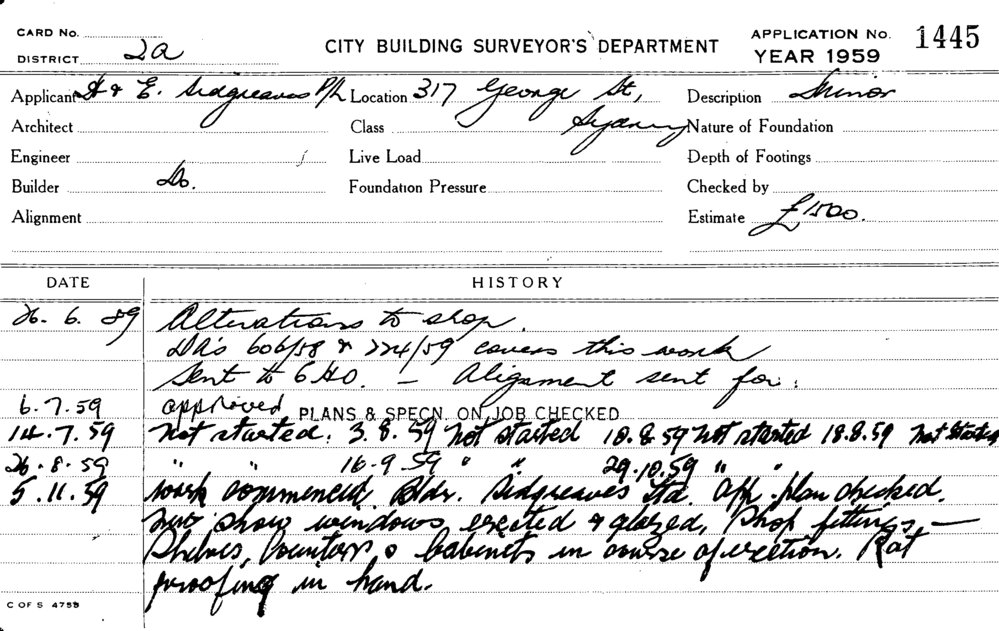 CARD No.
DISTRICT 2a
CITY BUILDING SURVEYOR'S DEPARTMENT
APPLICATION No. 1445
YEAR 1959
Applicant & E. Sidgreaves P/L Location 317 George St, Sydney Description Minor
Architect Class Nature of Foundation
Engineer Live Load Depth of Footings
Builder Do. Foundation Pressure Checked by
Alignment Estimate £1500.
DATE HISTORY
26. 6. 59 Alterations to shop.
DA's 606/58 & 224/59 covers this work
Sent to 6 HO. — Alignment sent for.
6. 7. 59 approved PLANS & SPECN. ON JOB CHECKED
14. 7. 59 Not started. 3. 8. 59 Not started 10. 8. 59 Not started 18.8.59 Not Started
26. 8. 59 " " 16-9-59 " " 29.10.59 " "
5. 11. 59 Work commenced. Bldr. Sidgreaves Ltd. App. plan checked.
New show windows erected & glazed, Shop fittings, —
Shelves, Counters, & Cabinets in course of erection. Rat
proofing in hand.
C OF S 4759